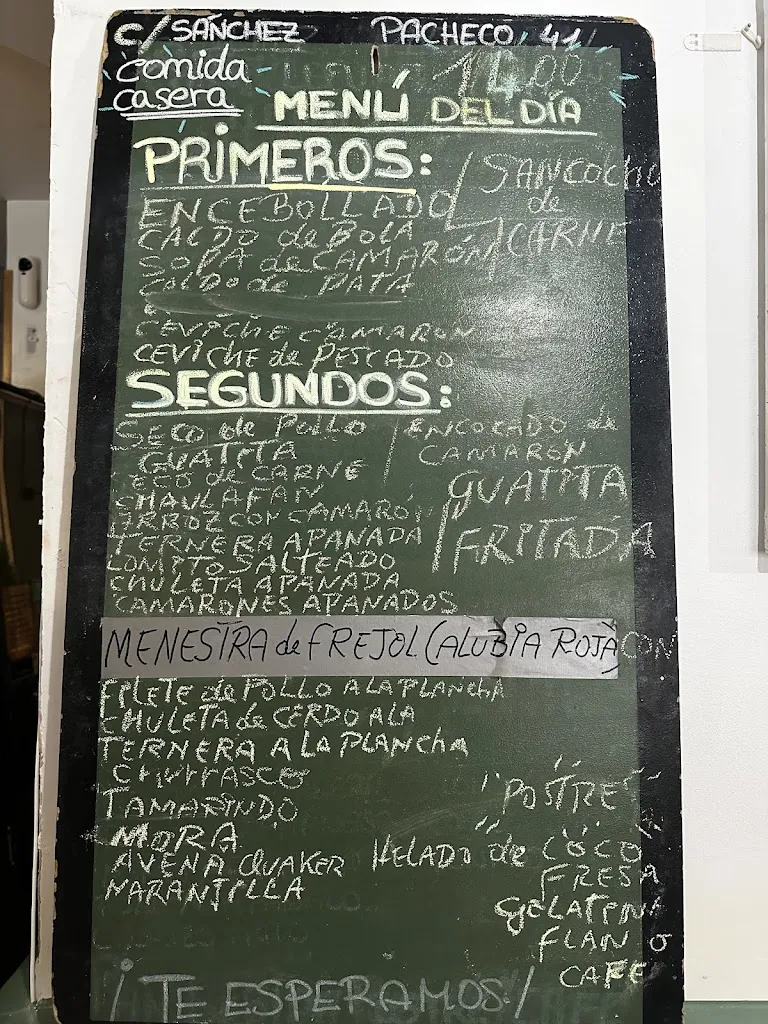 C/ SANCHEZ PACHECO, 41
comida
casera
14.00
MENÚ DEL DÍA
PRIMEROS:
ENCEBOLLADO
CALDO de BOLA
SOPA de CAMARÓN
CALDO de PATA
CEVICHE CAMARON
CEVICHE de PESCADO
SANCOCHO
de
CARNE
SEGUNDOS:
SECO de POLLO
GUATITA
ECO de CARNE
CHAULAFAN
ARROZ CON CAMARÓN
TERNERA APANADA
LOMITO SALTEADO
CHULETA APANADA
CAMARONES APANADOS
ENCOCADO de
CAMARON
GUATITA
FRITADA
MENESTRA de FREJOL (ALUBIA ROJA CON
FILETE de POLLO A LA PLANCHA
CHULETA de CERDO A LA
TERNERA A LA PLANCHA
CHURRASCO
TAMARINDO
MORA
AVENA QUAKER
NARANJILLA
POSTRE
HELADO de COCO
FRESA
GELATINA
FLAN O
CAFE
¡TE ESPERAMOS!